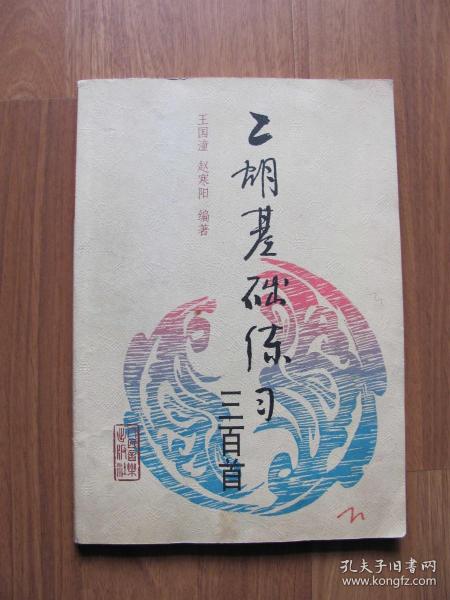 二胡基础练习
三百首
王国潼 赵寒阳 编著
孔夫子旧书网
www.kongfz.com